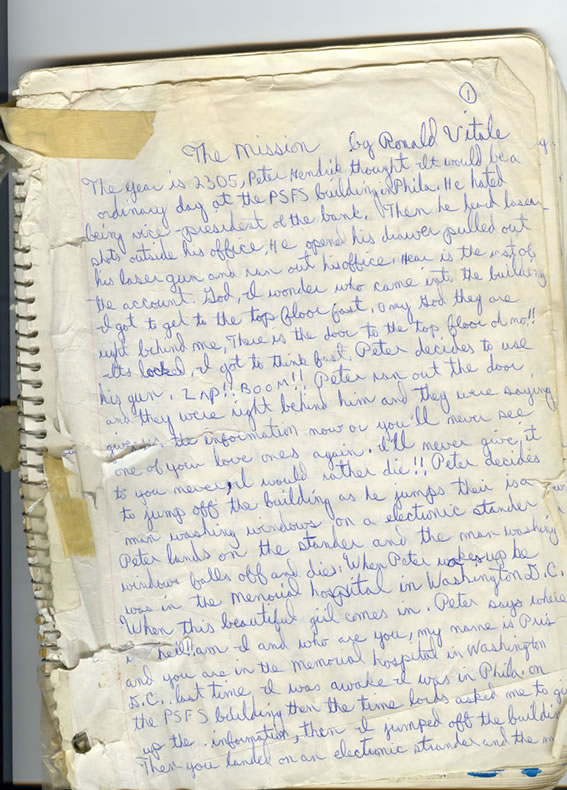 1
The Mission by Ronald Vitale
The year is 2305, Peter Hendrik thought It would be a
ordinary day at the PSFS building in Phila. He hated
being vice-president of the bank. Then he heard laser-
shots outside his office. He opened his drawer pulled out
his laser gun and ran out his office. Hear is the rest of
the account. God, I wonder who came into the building
I got to get to the top floor fast. O my God they are
right behind me, There is the door to the top floor oh no!!
Its locked, I got to think fast. Peter decides to use
his gun. ZAP!! BOOM!! Peter ran out the door
and they were right behind him and they were saying
give us the information now or you'll never see
one of your love ones again. I'll never give it
to you never, I would rather die!! Peter decides
to jump off the building as he jumps their is a
man washing windows on a electronic stander
Peter lands on the stander and the man washing
windows falls off and dies. When Peter wakes up he
was in the memorial hospital in Washington D.C.
When this beautiful girl comes in. Peter says where
hell am I and who are you, my name is Pris
and you are in the memorial hospital in Washington
D.C.. last time I was awake I was in Phila. on
the PSFS building then the time lords asked me to
up the information, then I jumped off the buildin
Then you landed on an electronic strander and the m